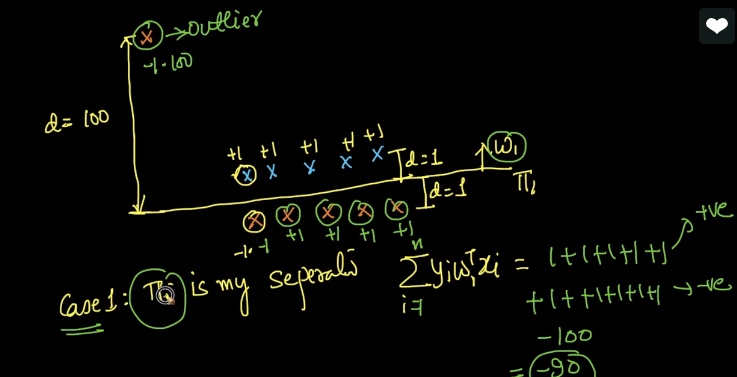 x → outlier
-1·100
d = 100
+1 +1 +1 +1 +1
x x x x x
d=1
w₁
d=1
π₁
x x x x x
-1·-1 +1 +1 +1 +1
Case 1: π₁ is my seperatin
n
∑ yᵢw₁ᵀxᵢ = 1+1+1+1+1 → +ve
i=1
+1++1+1+1+1 → -ve
-100
= -90